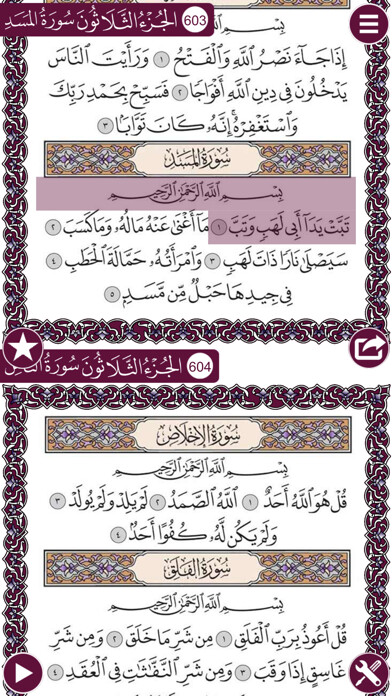 الجُزْءُ الثَّلَاثُونَ سُورَةُ المَسَدِ 603
بِسْمِ اللَّهِ الرَّحْمَٰنِ الرَّحِيمِ
إِذَا جَآءَ نَصْرُ اللَّهِ وَالْفَتْحُ ١ وَرَأَيْتَ النَّاسَ
يَدْخُلُونَ فِى دِينِ اللَّهِ أَفْوَاجًا ٢ فَسَبِّحْ بِحَمْدِ رَبِّكَ
وَاسْتَغْفِرْهُ إِنَّهُ كَانَ تَوَّابًا ٣
سُورَةُ المَسَدِ
بِسْمِ اللَّهِ الرَّحْمَٰنِ الرَّحِيمِ
تَبَّتْ يَدَآ أَبِى لَهَبٍ وَتَبَّ ١ مَآ أَغْنَىٰ عَنْهُ مَالُهُۥ وَمَا كَسَبَ ٢
سَيَصْلَىٰ نَارًا ذَاتَ لَهَبٍ ٣ وَامْرَأَتُهُۥ حَمَّالَةَ الْحَطَبِ ٤
فِى جِيدِهَا حَبْلٌ مِّن مَّسَدٍۭ ٥
الجُزْءُ الثَّلَاثُونَ سُورَةُ 604
سُورَةُ الإِخْلَاصِ
بِسْمِ اللَّهِ الرَّحْمَٰنِ الرَّحِيمِ
قُلْ هُوَ اللَّهُ أَحَدٌ ١ اللَّهُ الصَّمَدُ ٢ لَمْ يَلِدْ وَلَمْ يُولَدْ ٣
وَلَمْ يَكُن لَّهُۥ كُفُوًا أَحَدٌۢ ٤
سُورَةُ الفَلَقِ
بِسْمِ اللَّهِ الرَّحْمَٰنِ الرَّحِيمِ
قُلْ أَعُوذُ بِرَبِّ الْفَلَقِ ١ مِن شَرِّ مَا خَلَقَ ٢ وَمِن شَرِّ
غَاسِقٍ إِذَا وَقَبَ ٣ وَمِن شَرِّ النَّفَّٰثَٰتِ فِى الْعُقَدِ ٤